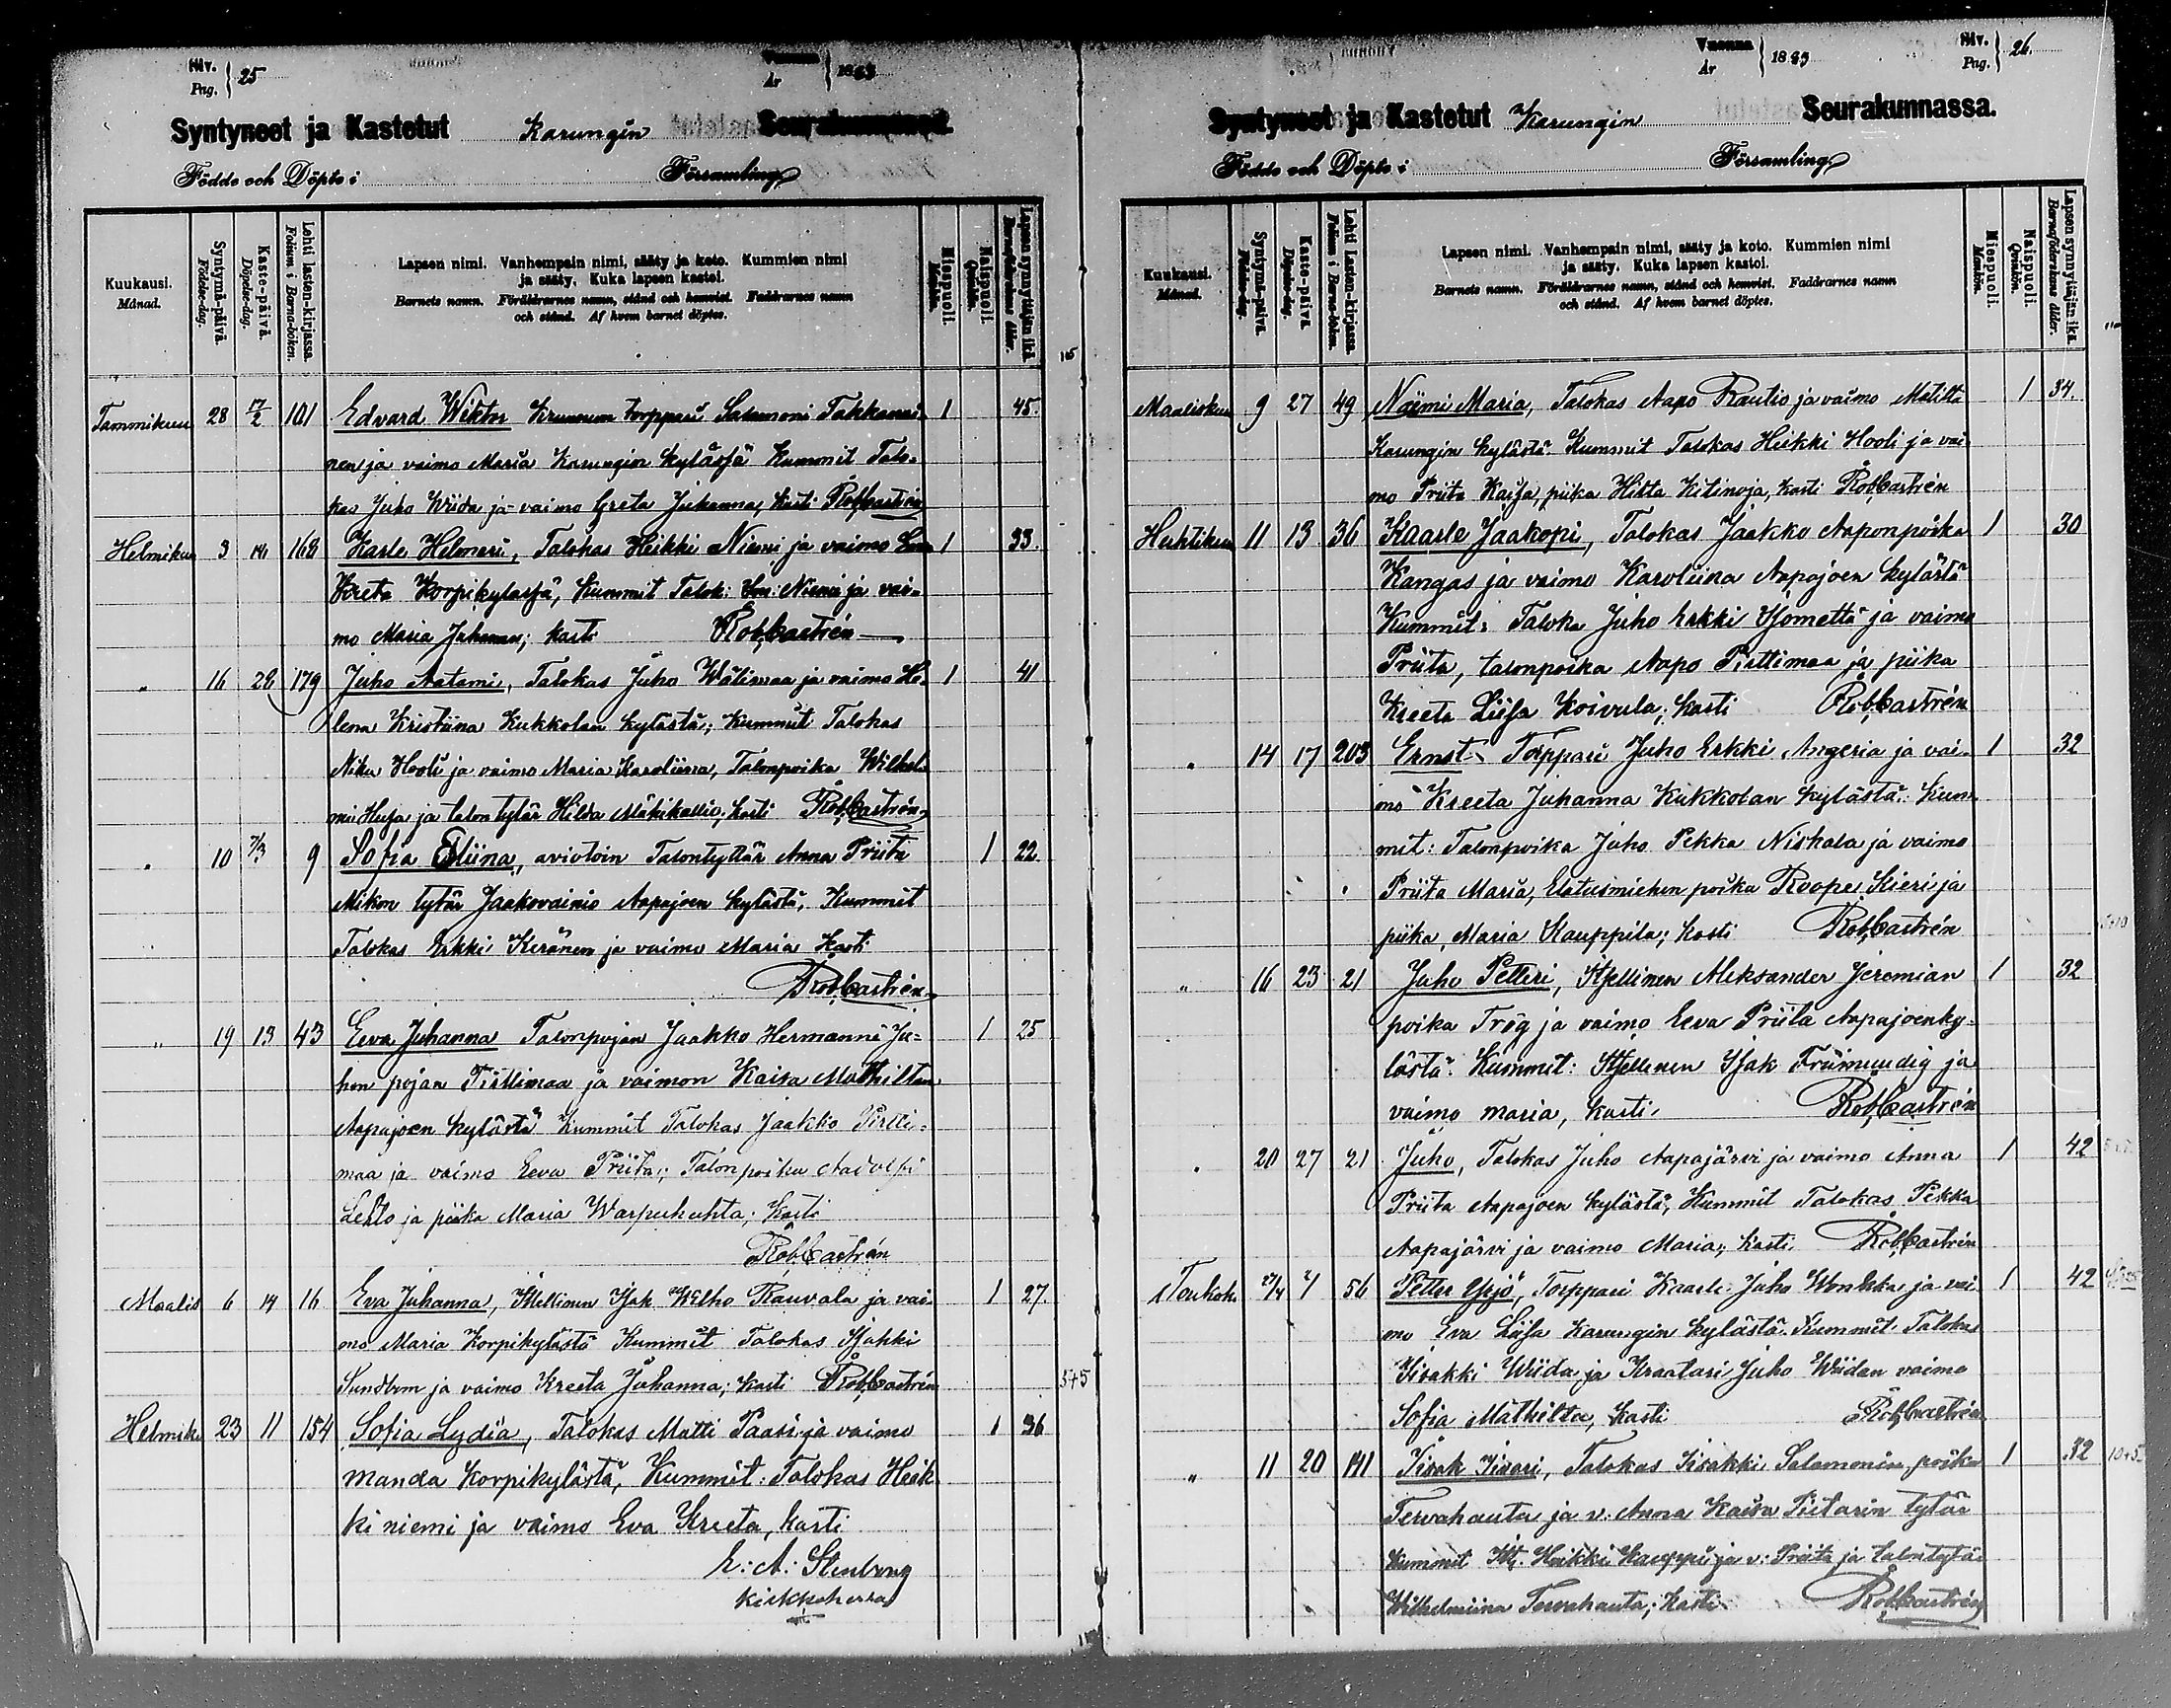 Siv. Pag. } 25
Vuonna År } 1893
Syntyneet ja Kastetut Karungin Seurakunnassa.
Födde och Döpte i Församling
Kuukausi. Månad.
Syntymä-päivä. Födelse-dag.
Kaste-päivä. Döpelse-dag.
Lehti lasten-kirjassa. Folium i Barna-boken.
Lapsen nimi. Vanhempain nimi, sääty ja koto. Kummien nimi
ja sääty. Kuka lapsen kastoi.
Barnets namn. Föräldrarnes namn, stånd och hemvist. Faddrarnes namn
och stånd. Af hvem barnet döptes.
Miespuoli. Mankön.
Naispuoli. Qvinkön.
Lapsen synnyttäjän ikä. Barnaföderskans ålder.
Tammikuu 28 17/2 101 Edvard Wiktor Kruunun torppari Salamoni Takkanai- 1 45.
nen ja vaimo Maria Karungin kylässä Kummit Talo-
kas Juho Wiida ja vaimo Greta Juhanna, kasti Rob. Castrén
Helmikuu 3 14 168 Kasle Helmeri, Talokas Heikki Niemi ja vaimo 1 33.
Kreta Korpikylassä, Kummit Talok: Niemi ja vai-
mo Maria Juhanna; kasti Rob. Castrén
" 16 28 179 Juho Aatami, Talokas Juho Wälimaa ja vaimo He- 1 41
lena Kristiina Kukkolan kylästä; Kummit Talokas
Niku Hooli ja vaimo Maria Karoliina, Talonpoika Wilhel-
mi Husa ja talon tytär Hilda Mäkikallio, kasti Rob. Castrén
" 10 7/3 9 Sofia Eliina, aviotoin Talontyttär Anna Priita 1 22.
Mikon tytär Jaakovainio Aapajoen kylästä, Kummit
Talokas Erkki Keränen ja vaimo Maria Kasti
Rob. Castrén
" 19 13 43 Eeva Juhanna Talonpojan Jaakko Hermanni Ju- 1 25
hon pojan Pirttimaa ja vaimon Kaisa Mathiltan
Aapajoen kylästä Kummit Talokas Jaakko Pirtti-
maa ja vaimo Eeva Priita; Talonpoika Aadolfi
Lehto ja piika Maria Warpuhuhta; Kasti
Rob. Castrén
Maalis 6 14 16 Eva Juhanna, Itsellinen Isak Wilho Rauvala ja vai- 1 27.
mo Maria Korpikylästä Kummit Talokas Isakki
Sundbom ja vaimo Kreeta Johanna; kasti Rob. Castrén
545
Helmik. 23 11 154 Sofia Lydia, Talokas Matti Paasi ja vaimo 1 36
Manda Korpikylästä, Kummit: Talokas Heik-
ki niemi ja vaimo Eva Kreeta, kasti
E: A: Stenberg
kirkkoherra
Siv. Pag. } 26.
Vuonna År } 1893
Syntyneet ja Kastetut Karungin Seurakunnassa.
Födde och Döpte i Församling
Kuukausi. Månad.
Syntymä-päivä. Födelse-dag.
Kaste-päivä. Döpelse-dag.
Lehti lasten-kirjassa. Folium i Barna-boken.
Lapsen nimi. Vanhempain nimi, sääty ja koto. Kummien nimi
ja sääty. Kuka lapsen kastoi.
Barnets namn. Föräldrarnes namn, stånd och hemvist. Faddrarnes namn
och stånd. Af hvem barnet döptes.
Miespuoli. Mankön.
Naispuoli. Qvinkön.
Lapsen synnyttäjän ikä. Barnaföderskans ålder.
Maaliskuu 9 27 49 Naimi Maria, Talokas Aapo Rautio ja vaimo Matilta 1 34.
Karungin kylästä. Kummit Talokas Heikki Hooli ja vai
mo Priita Kaisa, piika Hilta Kitinoja, kasti Rob. Castrén
Huhtikuu 11 13 36 Kaarle Jaakopi, Talokas Jaakko Aaponpoika 1 30
Kangas ja vaimo Karoliina Aapajoen kylästä
Kummit: Taloka Juho Erkki Isometta ja vaimo
Priita, talonpoika Aapo Pirttimaa ja piika
Kreeta Liisa Koivula; kasti Rob. Castrén
" 14 17 203 Ernst Torppari Juho Erkki Angeria ja vai- 1 32
mo Kreeta Juhanna Kukkolan kylästä: Kum
mit: Talonpoika Juho Pekka Niskala ja vaimo
Priita Maria, Elatusmiehen poika Roope Kieri ja
piika, Maria Kauppila; kasti Rob. Castrén
" 16 23 21 Juho Petteri, Itsellinen Aleksander Jeremian 1 32
poika Trög ja vaimo Eeva Priita Aapajoenky-
lästä. Kummit: Itsellinen Isak Friimuudig ja
vaimo maria, kasti, Rob. Castrén
" 20 27 21 Juho, Talokas Juho Aapajärvi ja vaimo Anna 1 42
Priita Aapajoen kylästä, Kummit Talokas Pekka
Aapajärvi ja vaimo Maria; kasti, Rob. Castrén
Toukok. 27/4 7 56 Petter Yrjö, Torppari Kaarle Juho Wonkka ja vai 1 42
mo Eva Liisa Karungin kylästä. Kummit Talokas
Iisakki Wiida ja Kraatari Juho Wiidan vaimo
Sofia Mathilta, kasti Rob. Castrén
" 11 20 141 Iisak Iivari, Talokas Iisakki Salamonin poika 1 32
Tervahauta ja v: Anna Kaisa Pietarin tytär
Kummit Itj. Heikki Kauppi ja v: Priita ja talontytär
Wilhelmiina Tervahauta; Kasti Rob. Castrén